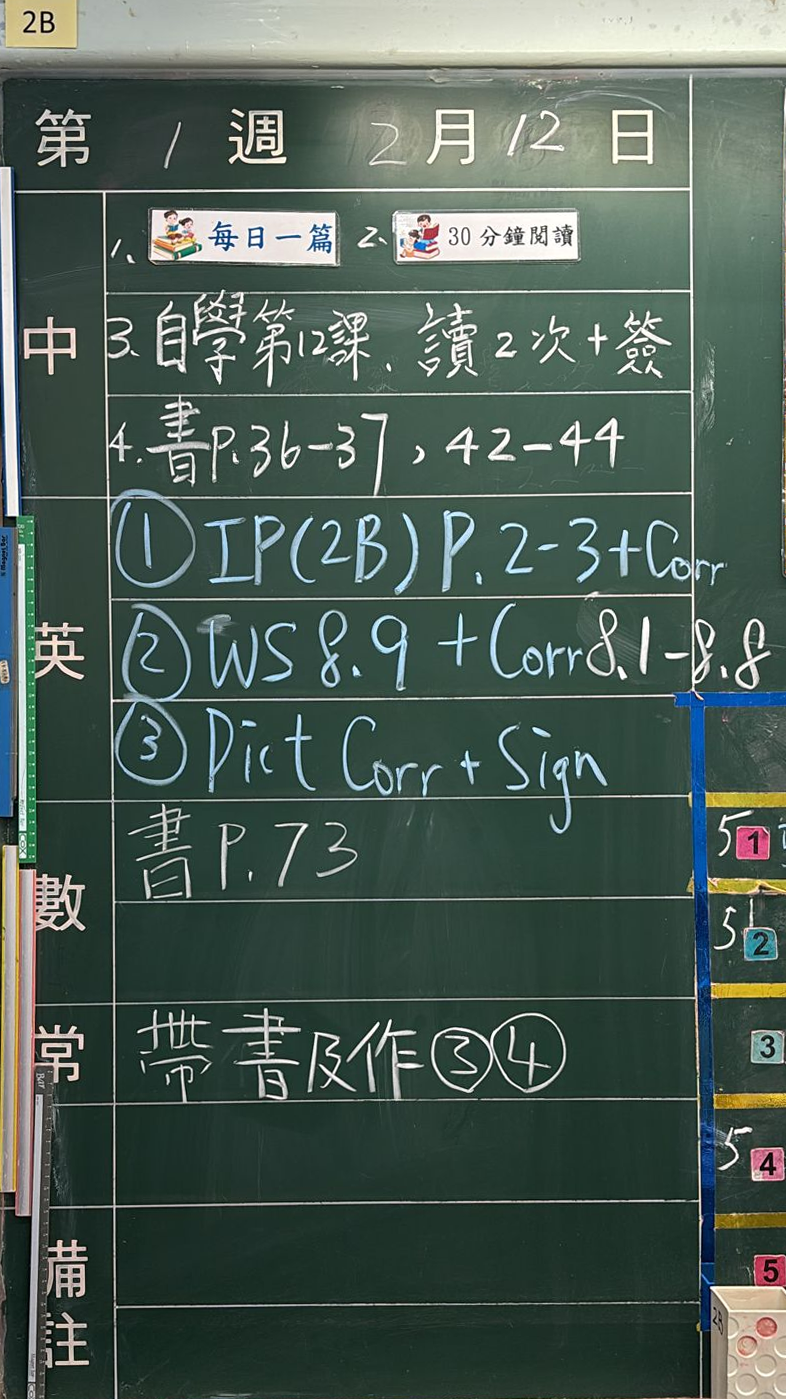 2B
第 1 週 2 月 12 日
中
1. 每日一篇 2. 30分鐘閱讀
3. 自學第12課、讀2次+簽
4. 書P.36-37, 42-44
英
① IP(2B) P.2-3+Corr
② WS 8.9 + Corr 8.1-8.8
③ Dict Corr + Sign
數
書 P.73
常
帶書及作③④
備註
5 1
5 2
3
5 4
5
2B